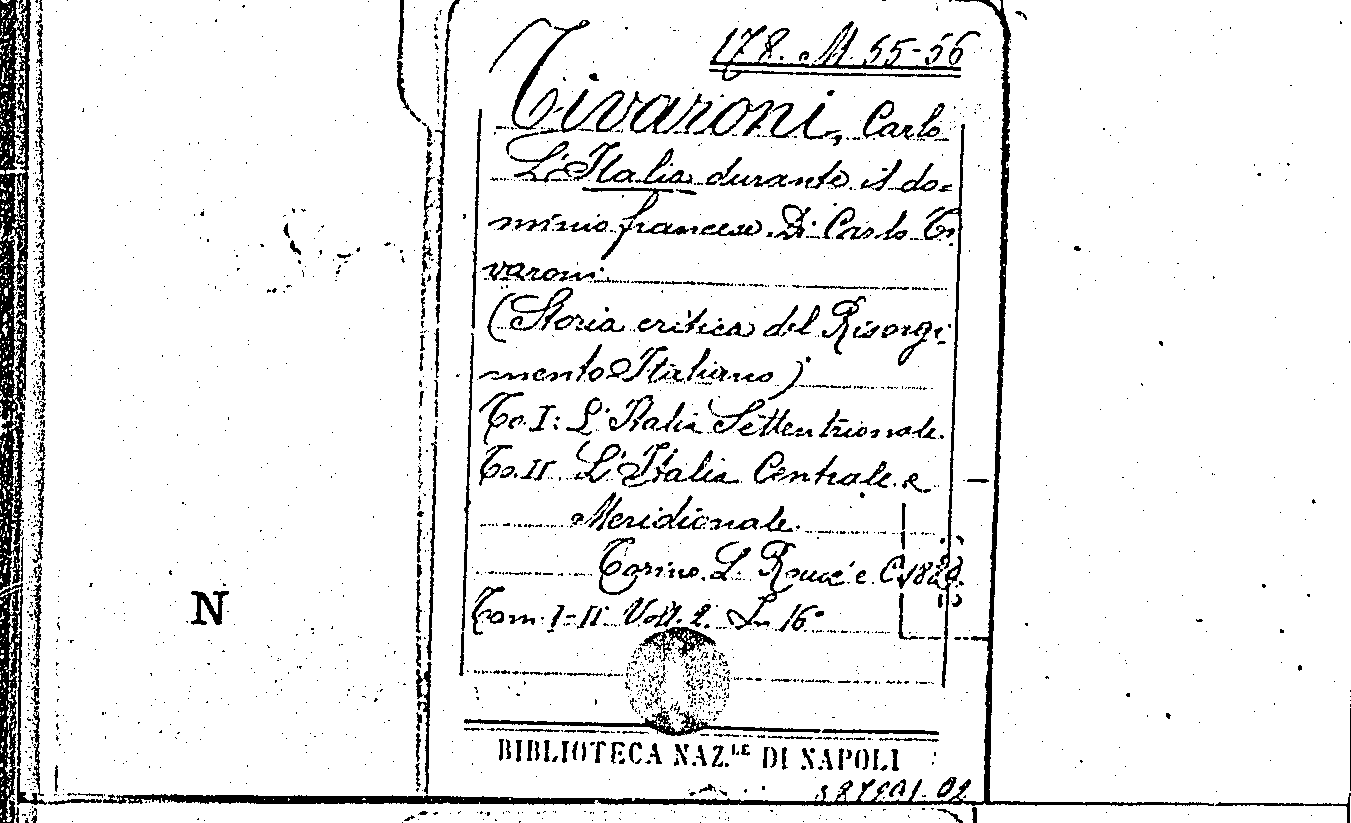 178. M. 55-56
Tivaroni, Carlo
L'Italia durante il do=
minio francese. Di Carlo Ti
varoni.
(Storia critica del Risorgi
mento Italiano)
To. I: L'Italia Settentrionale.
To. II. L'Italia Centrale e
Meridionale.
Torino. L. Roux e C.
N
Tom. I-II. Voll. 2. In 16°
BIBLIOTECA NAZ.LE DI NAPOLI